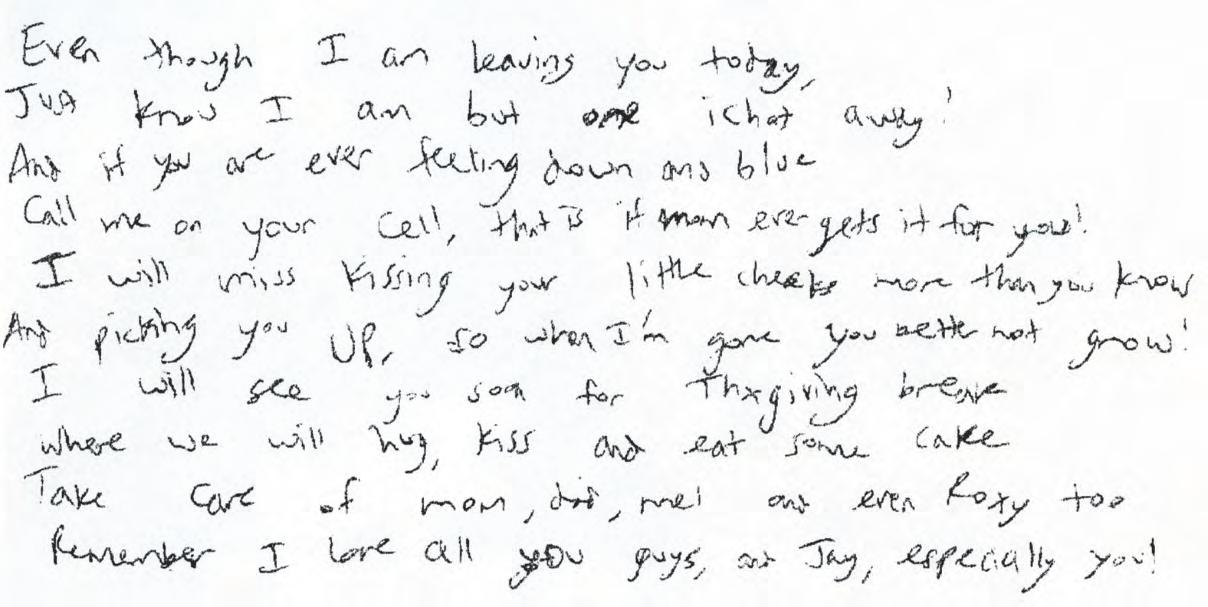 Even though I am leaving you today,
Just know I am but one ichat away!
And if you are ever feeling down and blue
Call me on your cell, that is if mom ever gets it for you!
I will miss kissing your little cheeks more than you know
And picking you up, so when I'm gone you better not grow!
I will see you soon for Thxgiving break
where we will hug, kiss and eat some cake
Take care of mom, dad, mel and even Roxy too
Remember I love all you guys, and Jay, especially you!